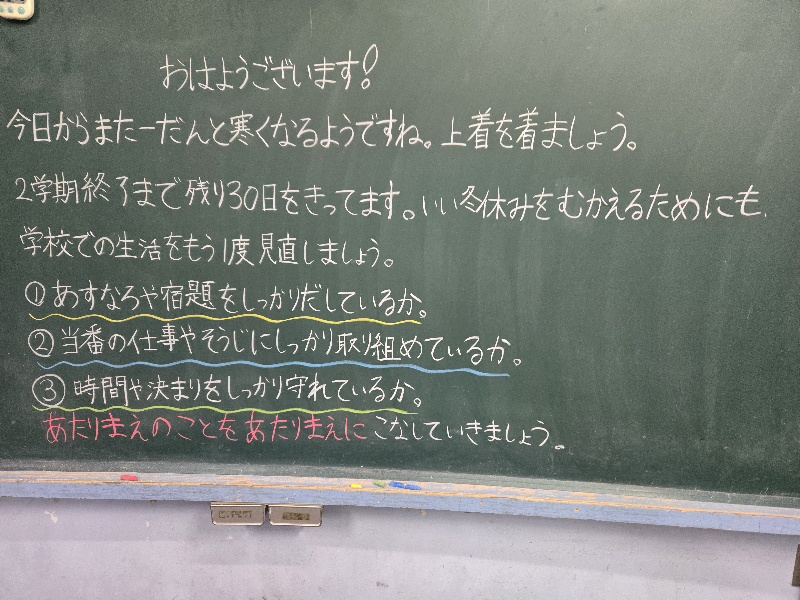 おはようございます!
今日からまた一だんと寒くなるようですね。上着を着ましょう。
2学期終了まで残り30日をきってます。いい冬休みをむかえるためにも、
学校での生活をもう1度見直しましょう。
①あすなろや宿題をしっかりだしているか。
②当番の仕事やそうじにしっかり取り組めているか。
③時間や決まりをしっかり守れているか。
あたりまえのことをあたりまえにこなしていきましょう。